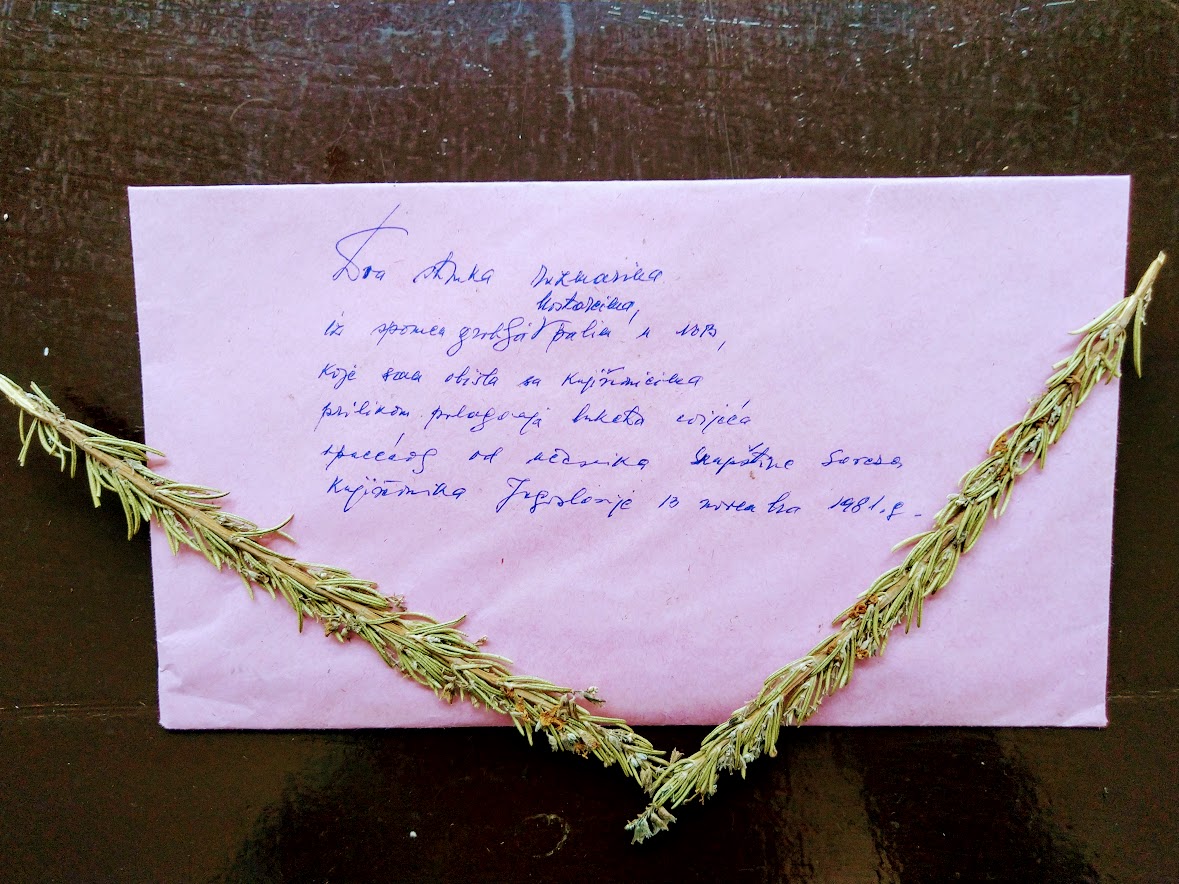 Dva struka ruzmarina
Mostarcima,
iz spomen groblja palim u NOB,
koje sam obišla sa Književnicima
prilikom polaganja buketa cvijeća
od učesnika Skupštine Saveza
Književnika Jugoslavije 13 novembra 1981.g.